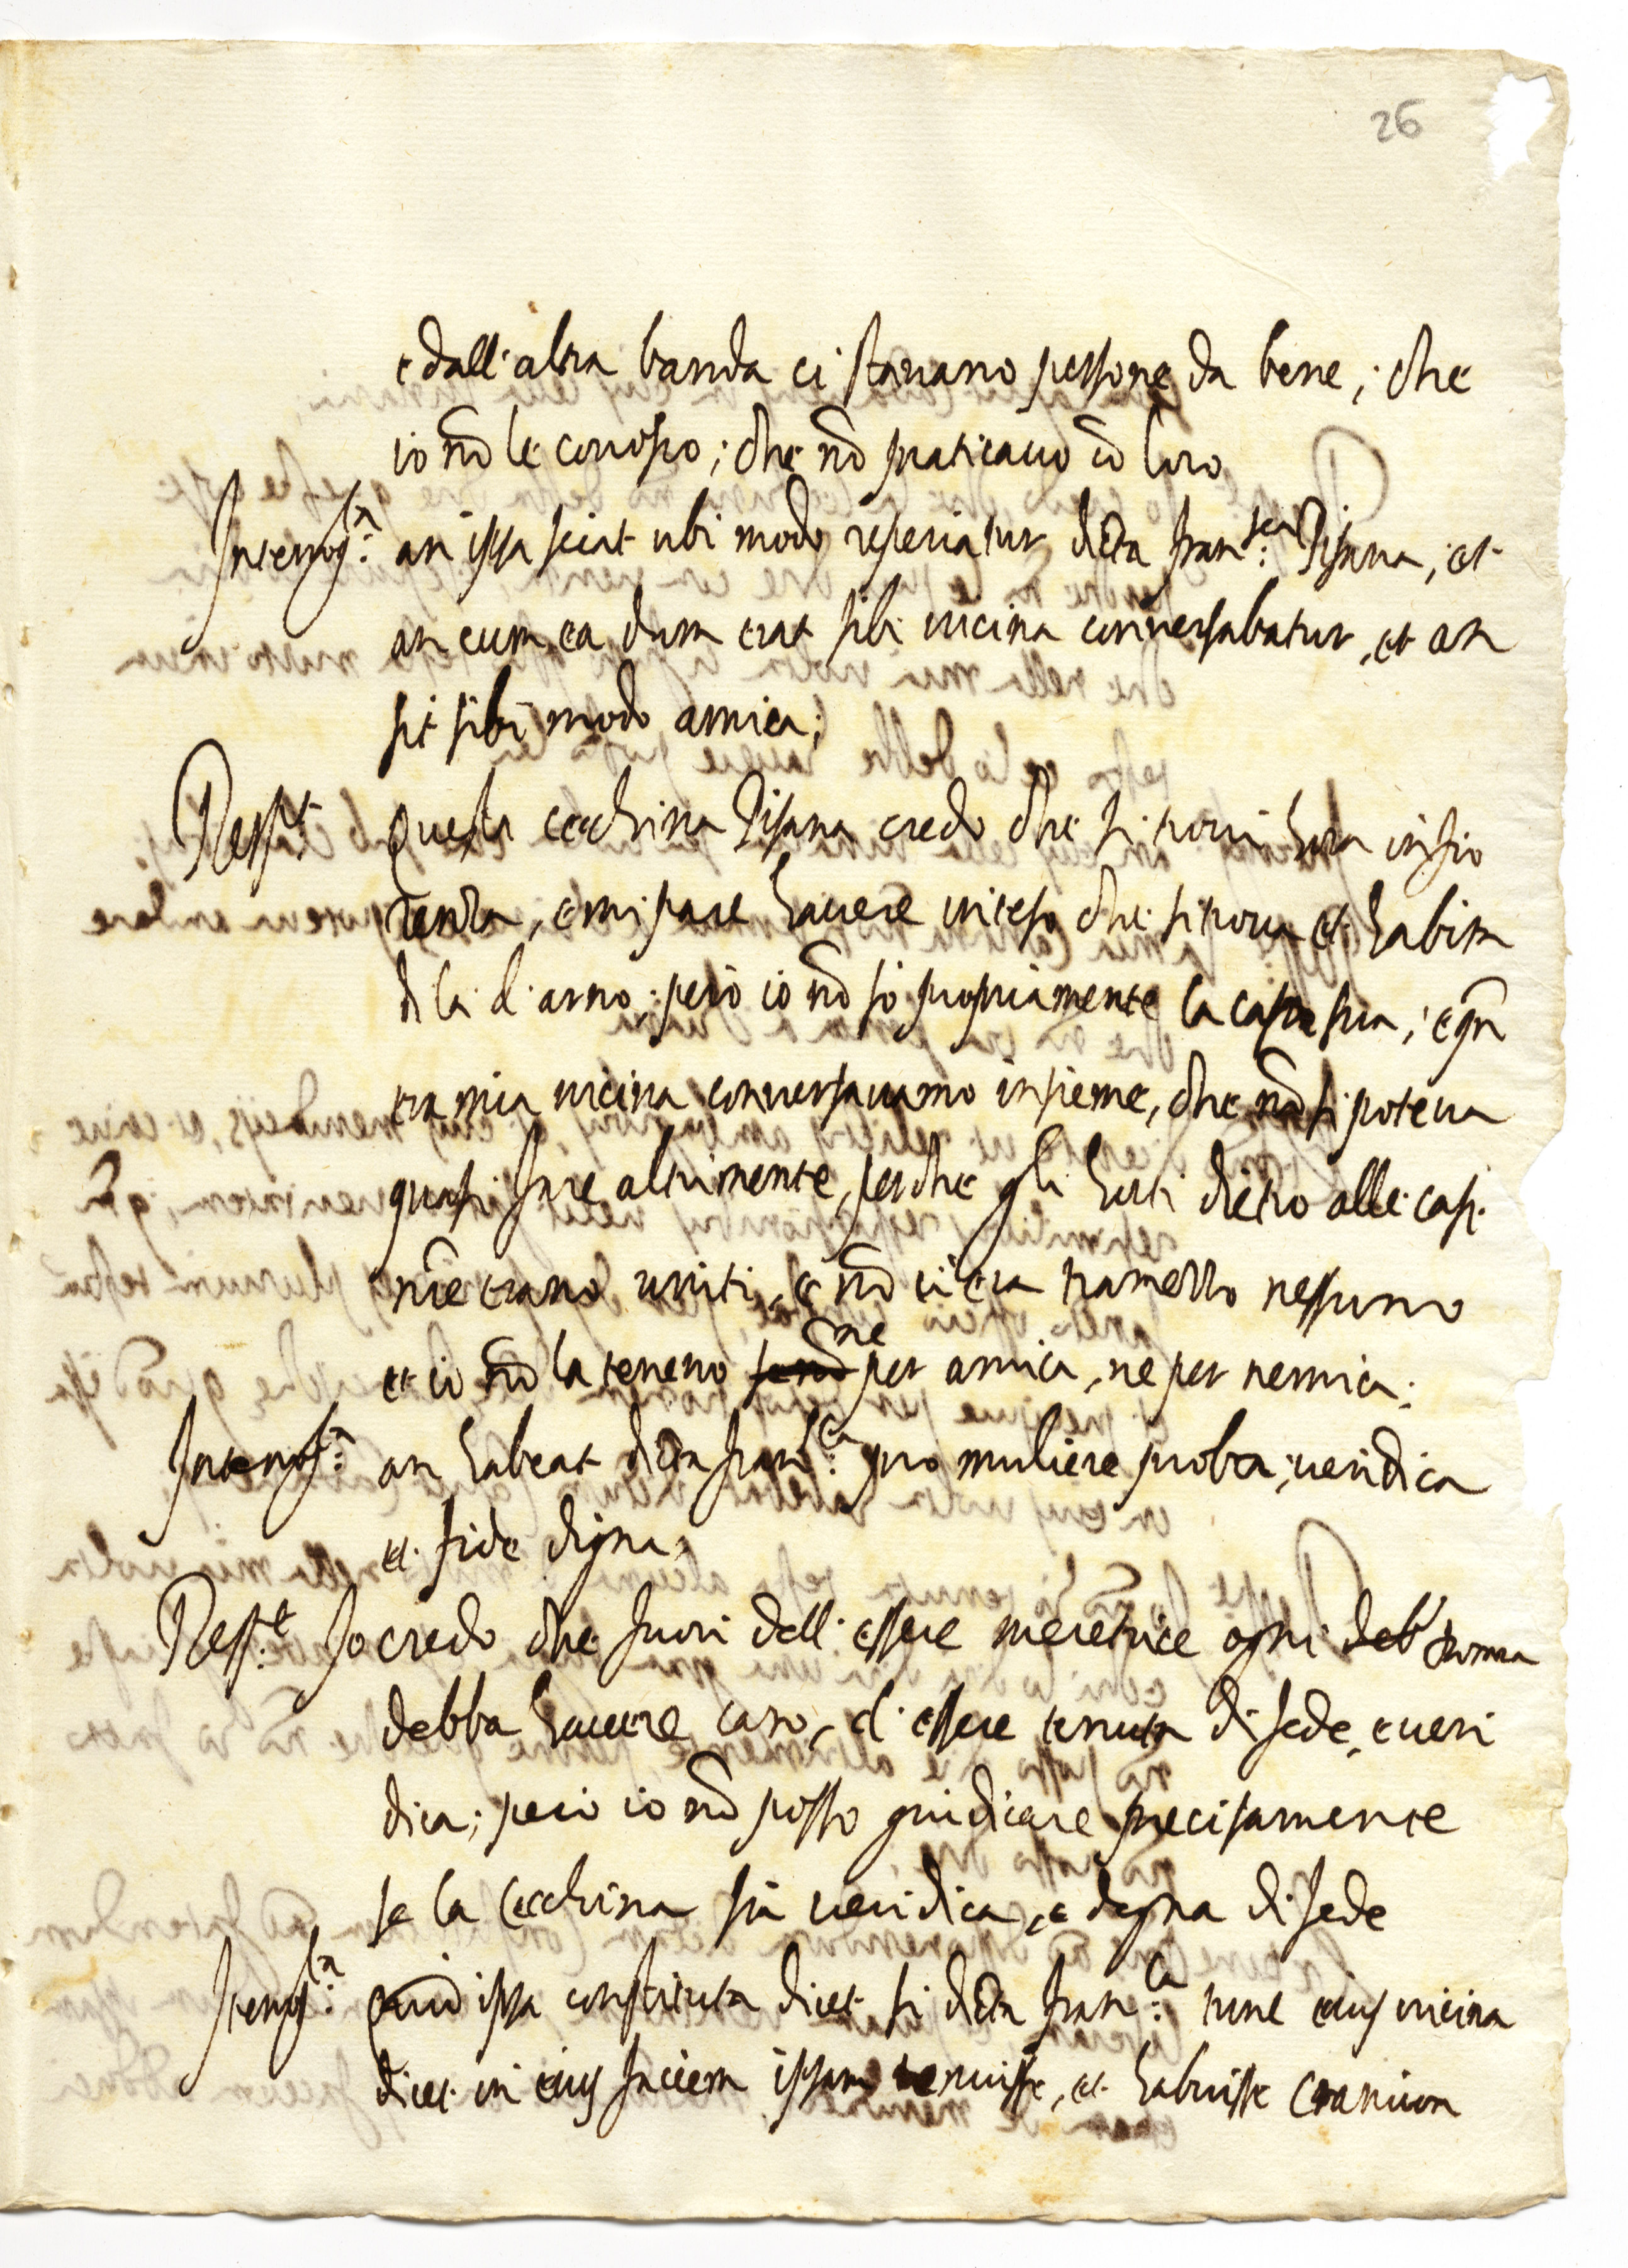 26
e dall'altra banda ci stavano persone da bene, che
io nō le conosco; che nō praticavo cō loro
Interrog.ta an ipsa sciat ubi modo reperiatur dicta Fran.sca Pisana, et
an cum ea dum erat sibi vicina conversabatur, et an
sit sibi modo amica;
Resp.t Questa cecchina Pisana credo che si trovi hora in fio
renza, e mi pare havere inteso che si trova et habita
di la d'arno. però io nō so propriamente la casa sua, e qn̄
era mia vicina conversavamo insieme, che nō si poteva
quasi fare altrimente, perche gli horti dietro alle case
nr̄e erano uniti, e nō ci era tramezzo nessuno
et io nō la tenevo ne per amica, ne per nemica.
Interrog.ta an habeat dictā Fran.ca pro muliere proba, veridica
et fide digna.
Resp.t Io credo che fuori dell'essere meretrice ogni deb donna
debba havere caro, d'essere tenuta di fede, e veri
dica; però io nō posso giudicare precisamente
se la Cecchina sia veridica, e degna di fede
Iterrog.ta Quid ipsa constituta dicet si dicta Fran.ca tunc eius vicina
dicet in eius faciem ipsam tenuisse, et habuisse cranium